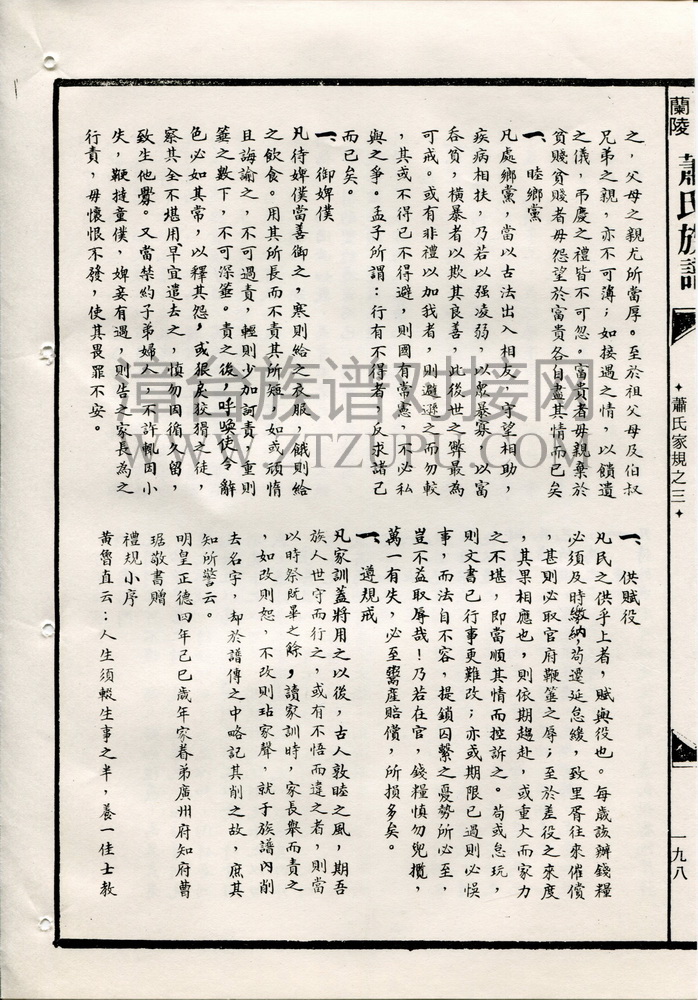 蘭陵 蕭氏族譜
蕭氏家規之三
一九八
之，父母之親尤所當厚。至於祖父母及伯叔
兄弟之親，亦不可薄；如接遇之情，以饋遺
之儀，弔慶之禮皆不可忽。富貴者毋親棄於
貧賤貧賤者毋怨望於富貴各自盡其情而已矣
一、睦鄉黨
凡處鄉黨，當以古法出入相友，守望相助，
疾病相扶，乃若以强凌弱，以眾暴寡，以富
吞貧，橫暴者以欺其良善，此後世之弊最為
可戒。或有非禮以加我者，則遜避之而勿較
，其或不得已不得避，則國有常憲，不必私
與之爭。孟子所謂：行有不得者，反求諸己
而已矣。
一、御婢僕
凡待婢僕當善御之，寒則給之衣服，餓則給
之飲食。用其所長而不責其所短，如或頑惰
且誨諭之，不可過責，輕則少加訶責，重則
箠之數下，不可深箠。責之後，呼喚使令辭
色必如其常，以釋其怨，或狠戾狡猾之徒，
察其全不堪用，早宜遣去之，慎勿因循久留，
致生他釁。又當禁約子弟婦人，不許輒因小
失，鞭撻童僕，婢妾有過，則告之家長為之
行責，毋懷恨不發，使其畏罪不安。
一、供賦役
凡民之供乎上者，賦與役也。每歲該辦錢糧
必須及時繳納，苟遷延怠緩，致里胥往來催償
，甚則必取官府鞭箠之辱；至於差役之來度
，其果相應也，則依期趨赴，或重大而家力
之不堪，即當順其情而控訴之。苟或怠玩，
則文書已行事更難改；亦或期限已過則必悞
事，而法自不容，提鎖囚繫之憂勢所必至，
豈不益取辱哉！乃若在官，錢糧慎勿兜攬，
萬一有失，必至鬻產賠償，所損多矣。
一、遵規戒
凡家訓蓋將用之以後，古人敦睦之風，期吾
族人世守而行之，或有不悟而違之者，則當
以時祭既畢之餘，讀家訓時，家長舉而責之
，如改則恕，不改則玷家聲，就于族譜內削
去名字，却於譜傳之中略記其削之故，庶其
知所警云。
明皇正德四年己巳歲年家眷弟廣州府知府曹
琚敬書贈
禮規小序
黃魯直云：人生須輟生事之半，養一佳士教
官台族谱对接网
WWW.ZTZUPU.COM